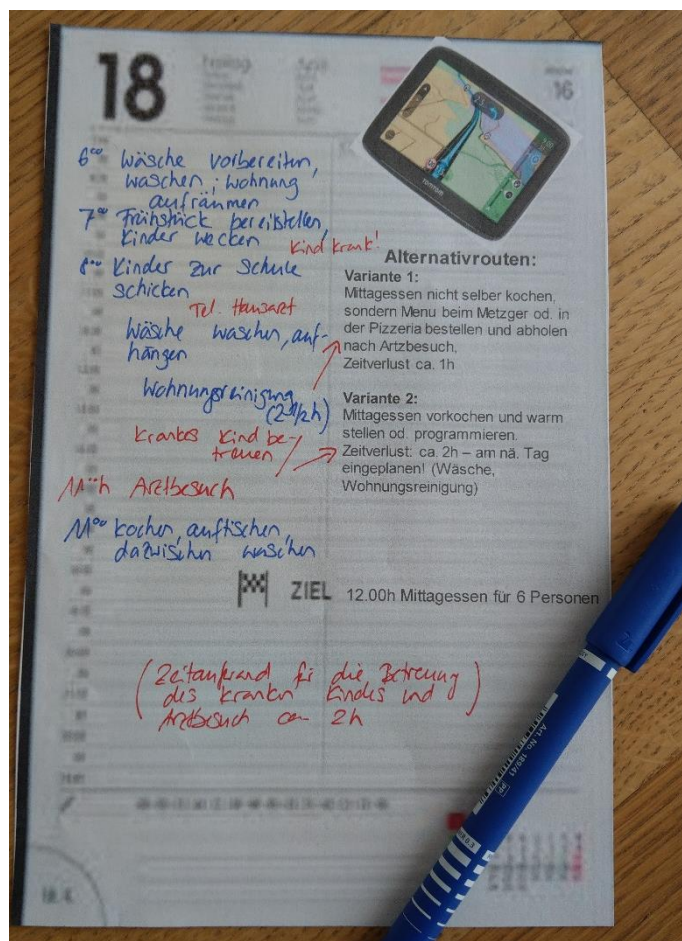 18
Freitag
16
TOMTOM
6⁰⁰ Wäsche vorbereiten,
waschen; Wohnung
aufräumen
7⁰⁰ Frühstück bereitstellen,
Kinder wecken
Kind krank!
8⁰⁰ Kinder zur Schule
schicken
Tel. Hausarzt
Wäsche waschen, auf-
hängen
Wohnungsreinigung
(2 1/2 h)
Krankes Kind be-
treuen
Arztbesuch
11⁰⁰ kochen, auftischen,
dazwischen waschen
Alternativrouten:
Variante 1:
Mittagessen nicht selber kochen,
sondern Menu beim Metzger od. in
der Pizzeria bestellen und abholen
nach Artzbesuch,
Zeitverlust ca. 1h
Variante 2:
Mittagessen vorkochen und warm
stellen od. programmieren.
Zeitverlust: ca. 2h – am nä. Tag
eingeplanen! (Wäsche,
Wohnungsreinigung)
ZIEL 12.00h Mittagessen für 6 Personen
(Zeitaufwand für die Betreuung
des kranken Kindes und
Arztbesuch ca. 2h)
Art. No. 189/41
PP
18. 4.